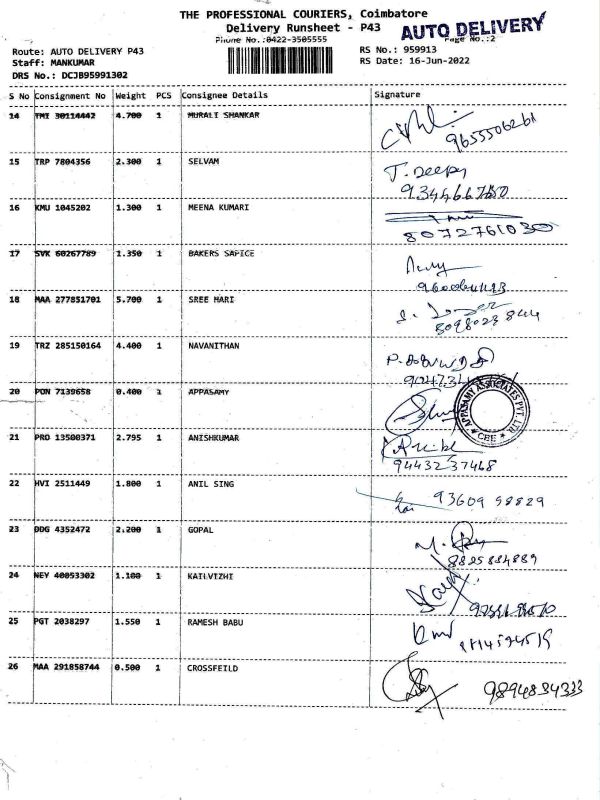 THE PROFESSIONAL COURIERS, Coimbatore
Delivery Runsheet - P43
AUTO DELIVERY
Phone No.:0422-3505555
Page No.:2
Route: AUTO DELIVERY P43
RS No.: 959913
Staff: MANKUMAR
RS Date: 16-Jun-2022
DRS No.: DCJB95991302
S No Consignment No Weight PCS Consignee Details Signature
14 TMI 30114442 4.700 1 MURALI SHANKAR
9655506261
15 TRP 7804356 2.300 1 SELVAM
T. Deepa
16 KMU 1045202 1.300 1 MEENA KUMARI
8072761030
17 SVK 60267789 1.350 1 BAKERS SAPICE
18 MAA 277851701 5.700 1 SREE HARI
8098023844
19 TRZ 285150164 4.400 1 NAVANITHAN
20 PON 7139658 0.400 1 APPASAMY
APPASAMY ASSOCIATES PVT. LTD.
* CBE *
21 PRO 13500371 2.795 1 ANISHKUMAR
94432 37468
22 HVI 2511449 1.800 1 ANIL SING
93609 58829
23 DDG 4352472 2.200 1 GOPAL
8825884889
24 NEY 40053302 1.100 1 KAILVIZHI
25 PGT 2038297 1.550 1 RAMESH BABU
26 MAA 291858744 0.500 1 CROSSFEILD
9894834333